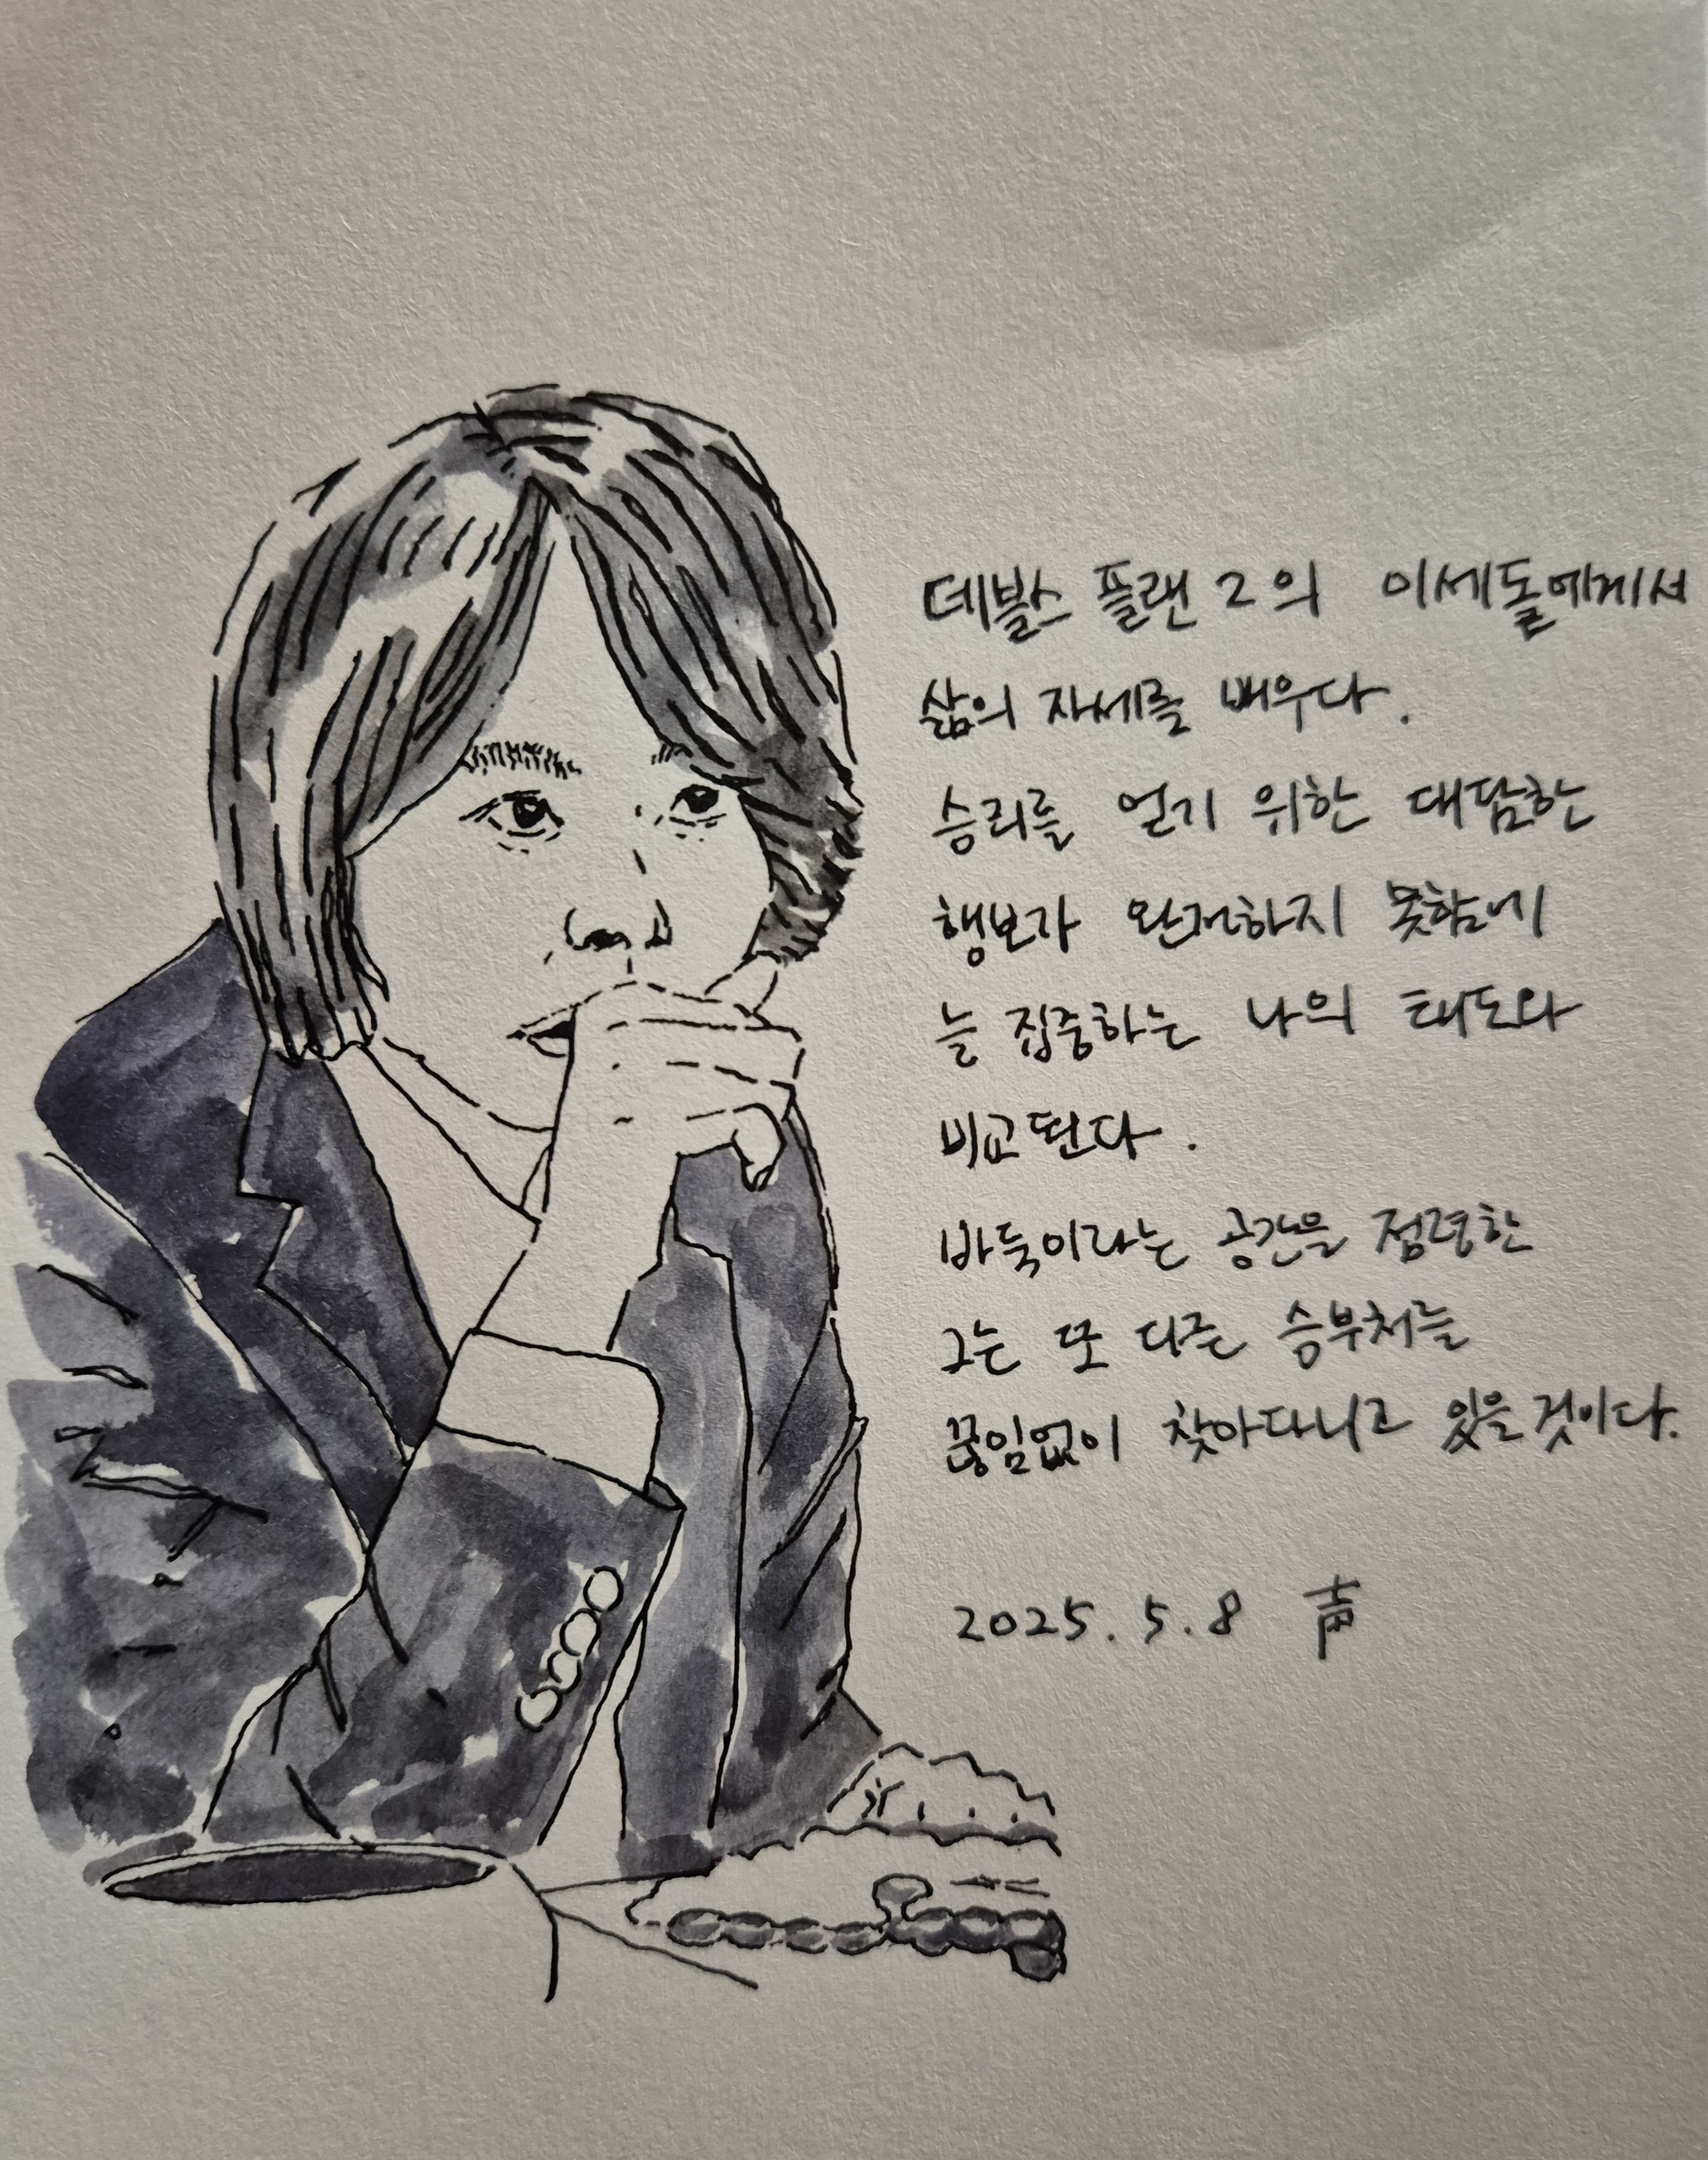 데블스 플랜 2의 이세돌에게서
삶의 자세를 배우다.
승리를 얻기 위한 대담한
행보가 완전하지 못함에
늘 집중하는 나의 태도와
비교된다.
바둑이라는 공간을 점령한
그는 또 다른 승부처를
끊임없이 찾아다니고 있을 것이다.
2025. 5. 8